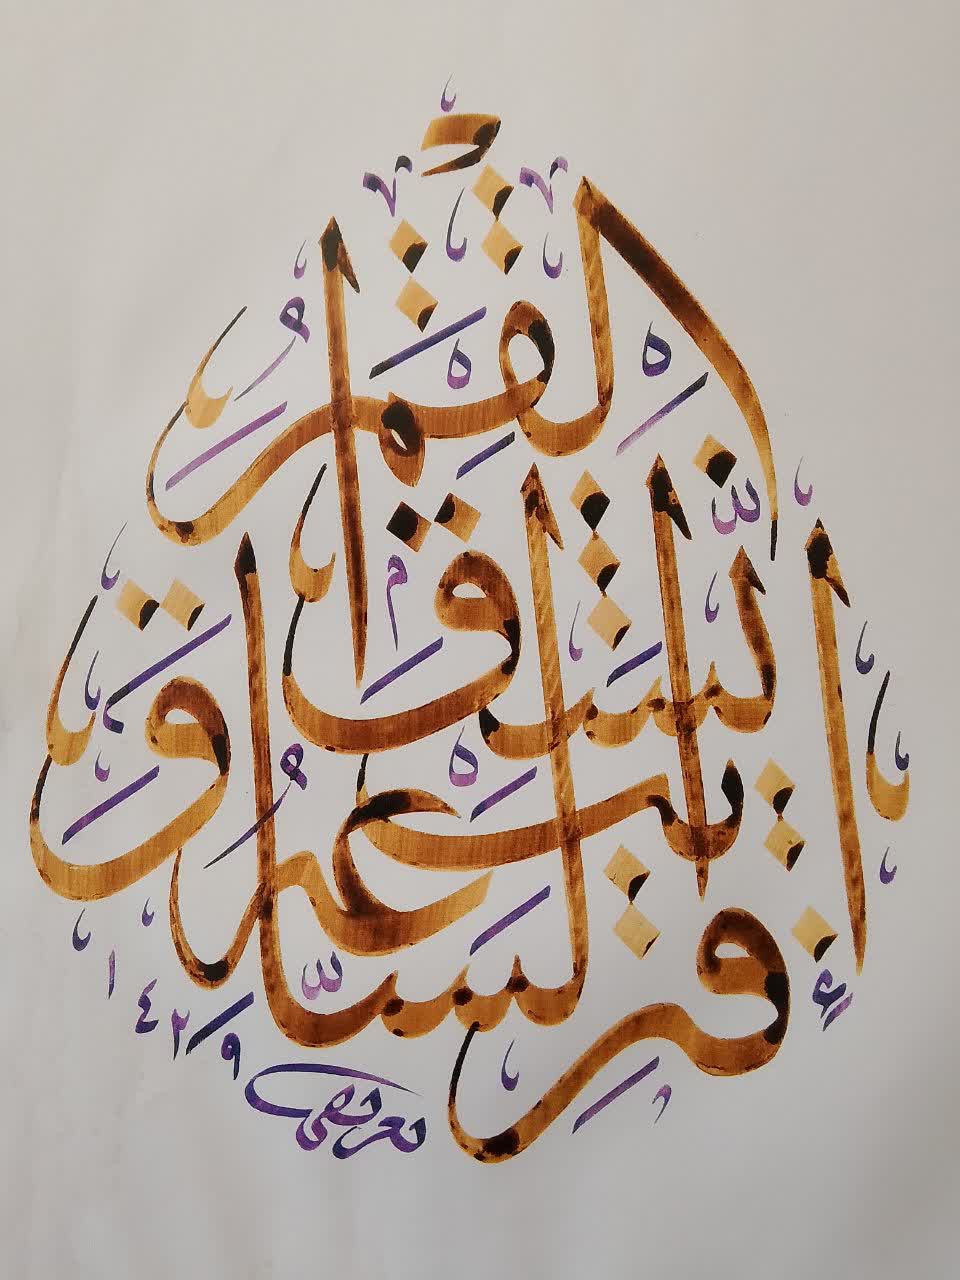 اقتربت الساعة وانشق القمر
١٤٢٩